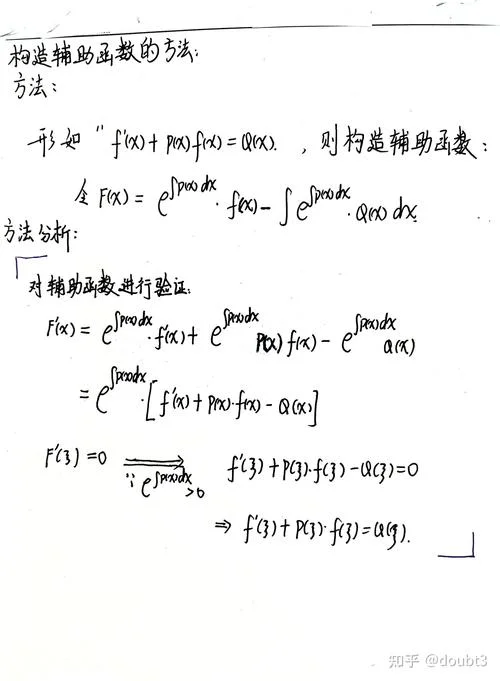 构造辅助函数的方法:
方法:
形如 "f'(x)+p(x)f(x)=Q(x). ,则构造辅助函数:
令 F(x) = e^{∫p(x)dx}·f(x) - ∫e^{∫p(x)dx}·Q(x)dx.
方法分析:
对辅助函数进行验证:
F'(x) = e^{∫p(x)dx}·f'(x) + e^{∫p(x)dx} p(x)f(x) - e^{∫p(x)dx} Q(x)
= e^{∫p(x)dx}·[f'(x)+p(x)·f(x)-Q(x)]
F'(ξ)=0 ⟹ ∵e^{∫p(x)dx}>0 f'(ξ)+p(ξ)·f(ξ)-Q(ξ)=0
⇒ f'(ξ)+p(ξ)·f(ξ)=Q(ξ).
知乎 @doubt3